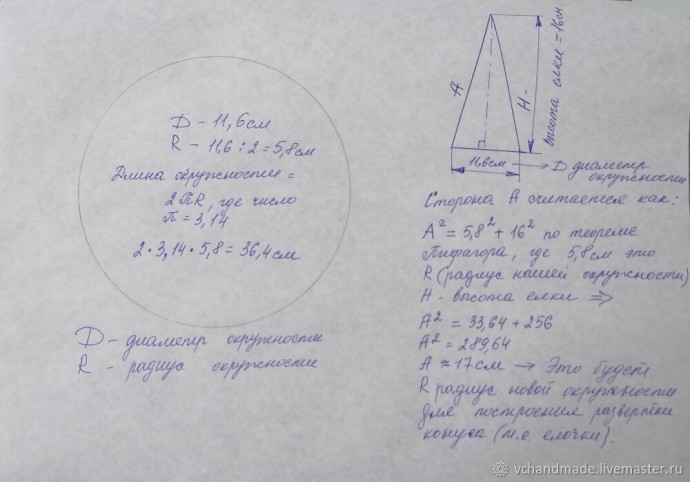 D - 11,6см
R - 11,6 : 2 = 5,8см
Длина окружности =
2ПR, где число
П = 3,14
2 · 3,14 · 5,8 = 36,4см
D - диаметр окружности
R - радиус окружности
A
H -
высота елки = 16см
11,6см
D диаметр
окружности
Сторона А считается как:
A² = 5,8² + 16² по теореме
Пифагора, где 5,8см это
R (радиус нашей окружности)
H - высота елки ⇒
A² = 33,64 + 256
A² = 289,64
A ≈ 17см → Это будет
R радиус новой окружности
для построения развертки
конуса (т.е. елочки).
vchandmade.livemaster.ru